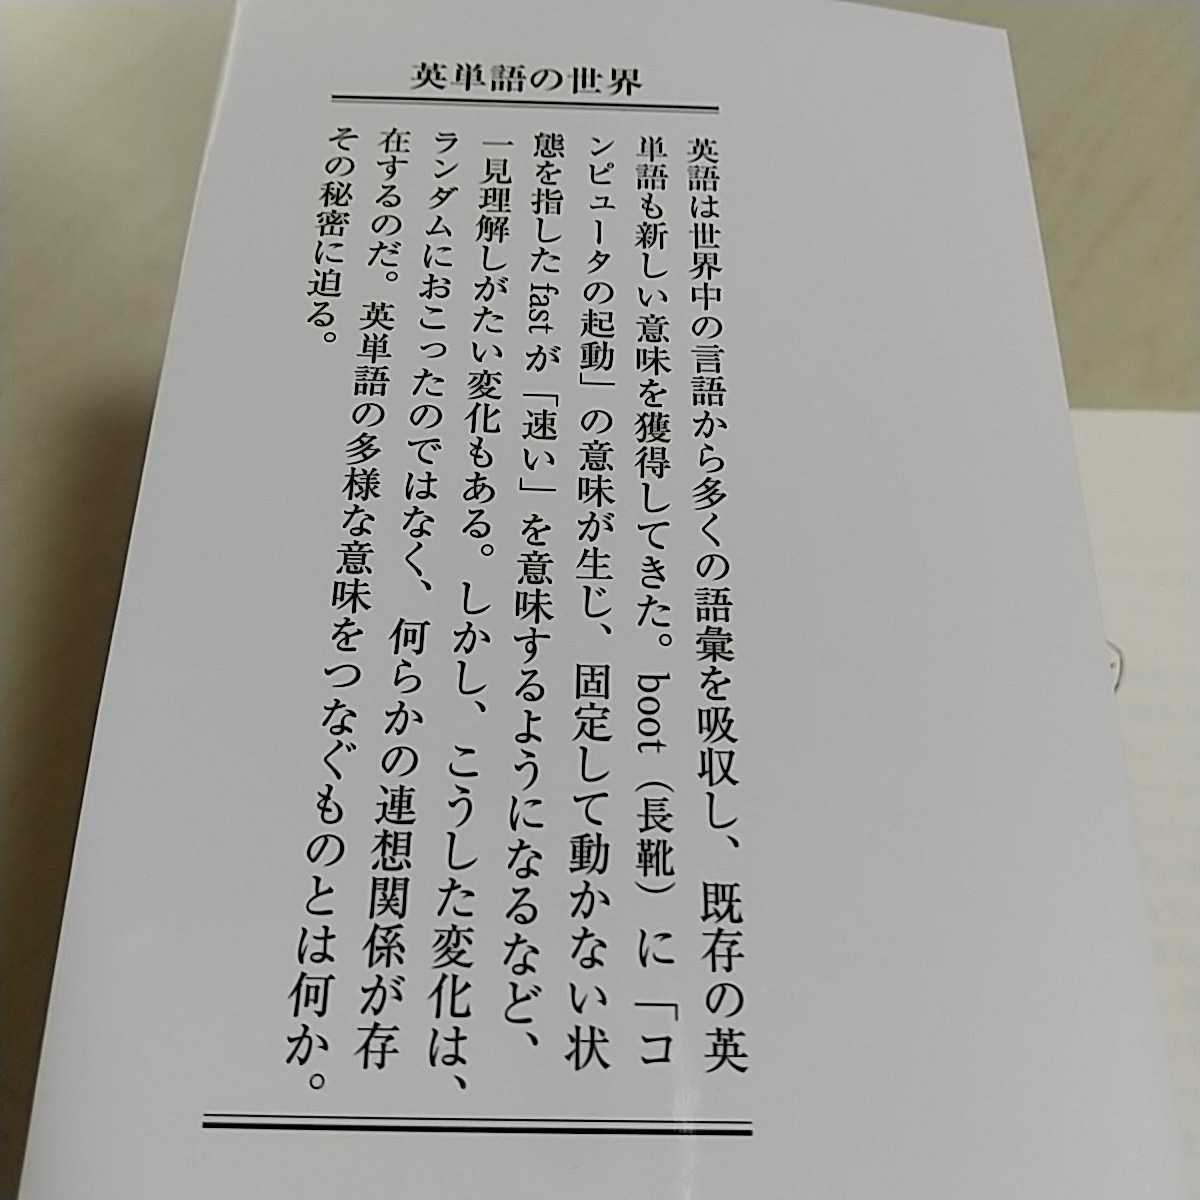 英単語の世界
英語は世界中の言語から多くの語彙を吸収し、既存の英
単語も新しい意味を獲得してきた。boot（長靴）に「コ
ンピュータの起動」の意味が生じ、固定して動かない状
態を指したfastが「速い」を意味するようになるなど、
一見理解しがたい変化もある。しかし、こうした変化は、
ランダムにおこったのではなく、何らかの連想関係が存
在するのだ。英単語の多様な意味をつなぐものとは何か。
その秘密に迫る。